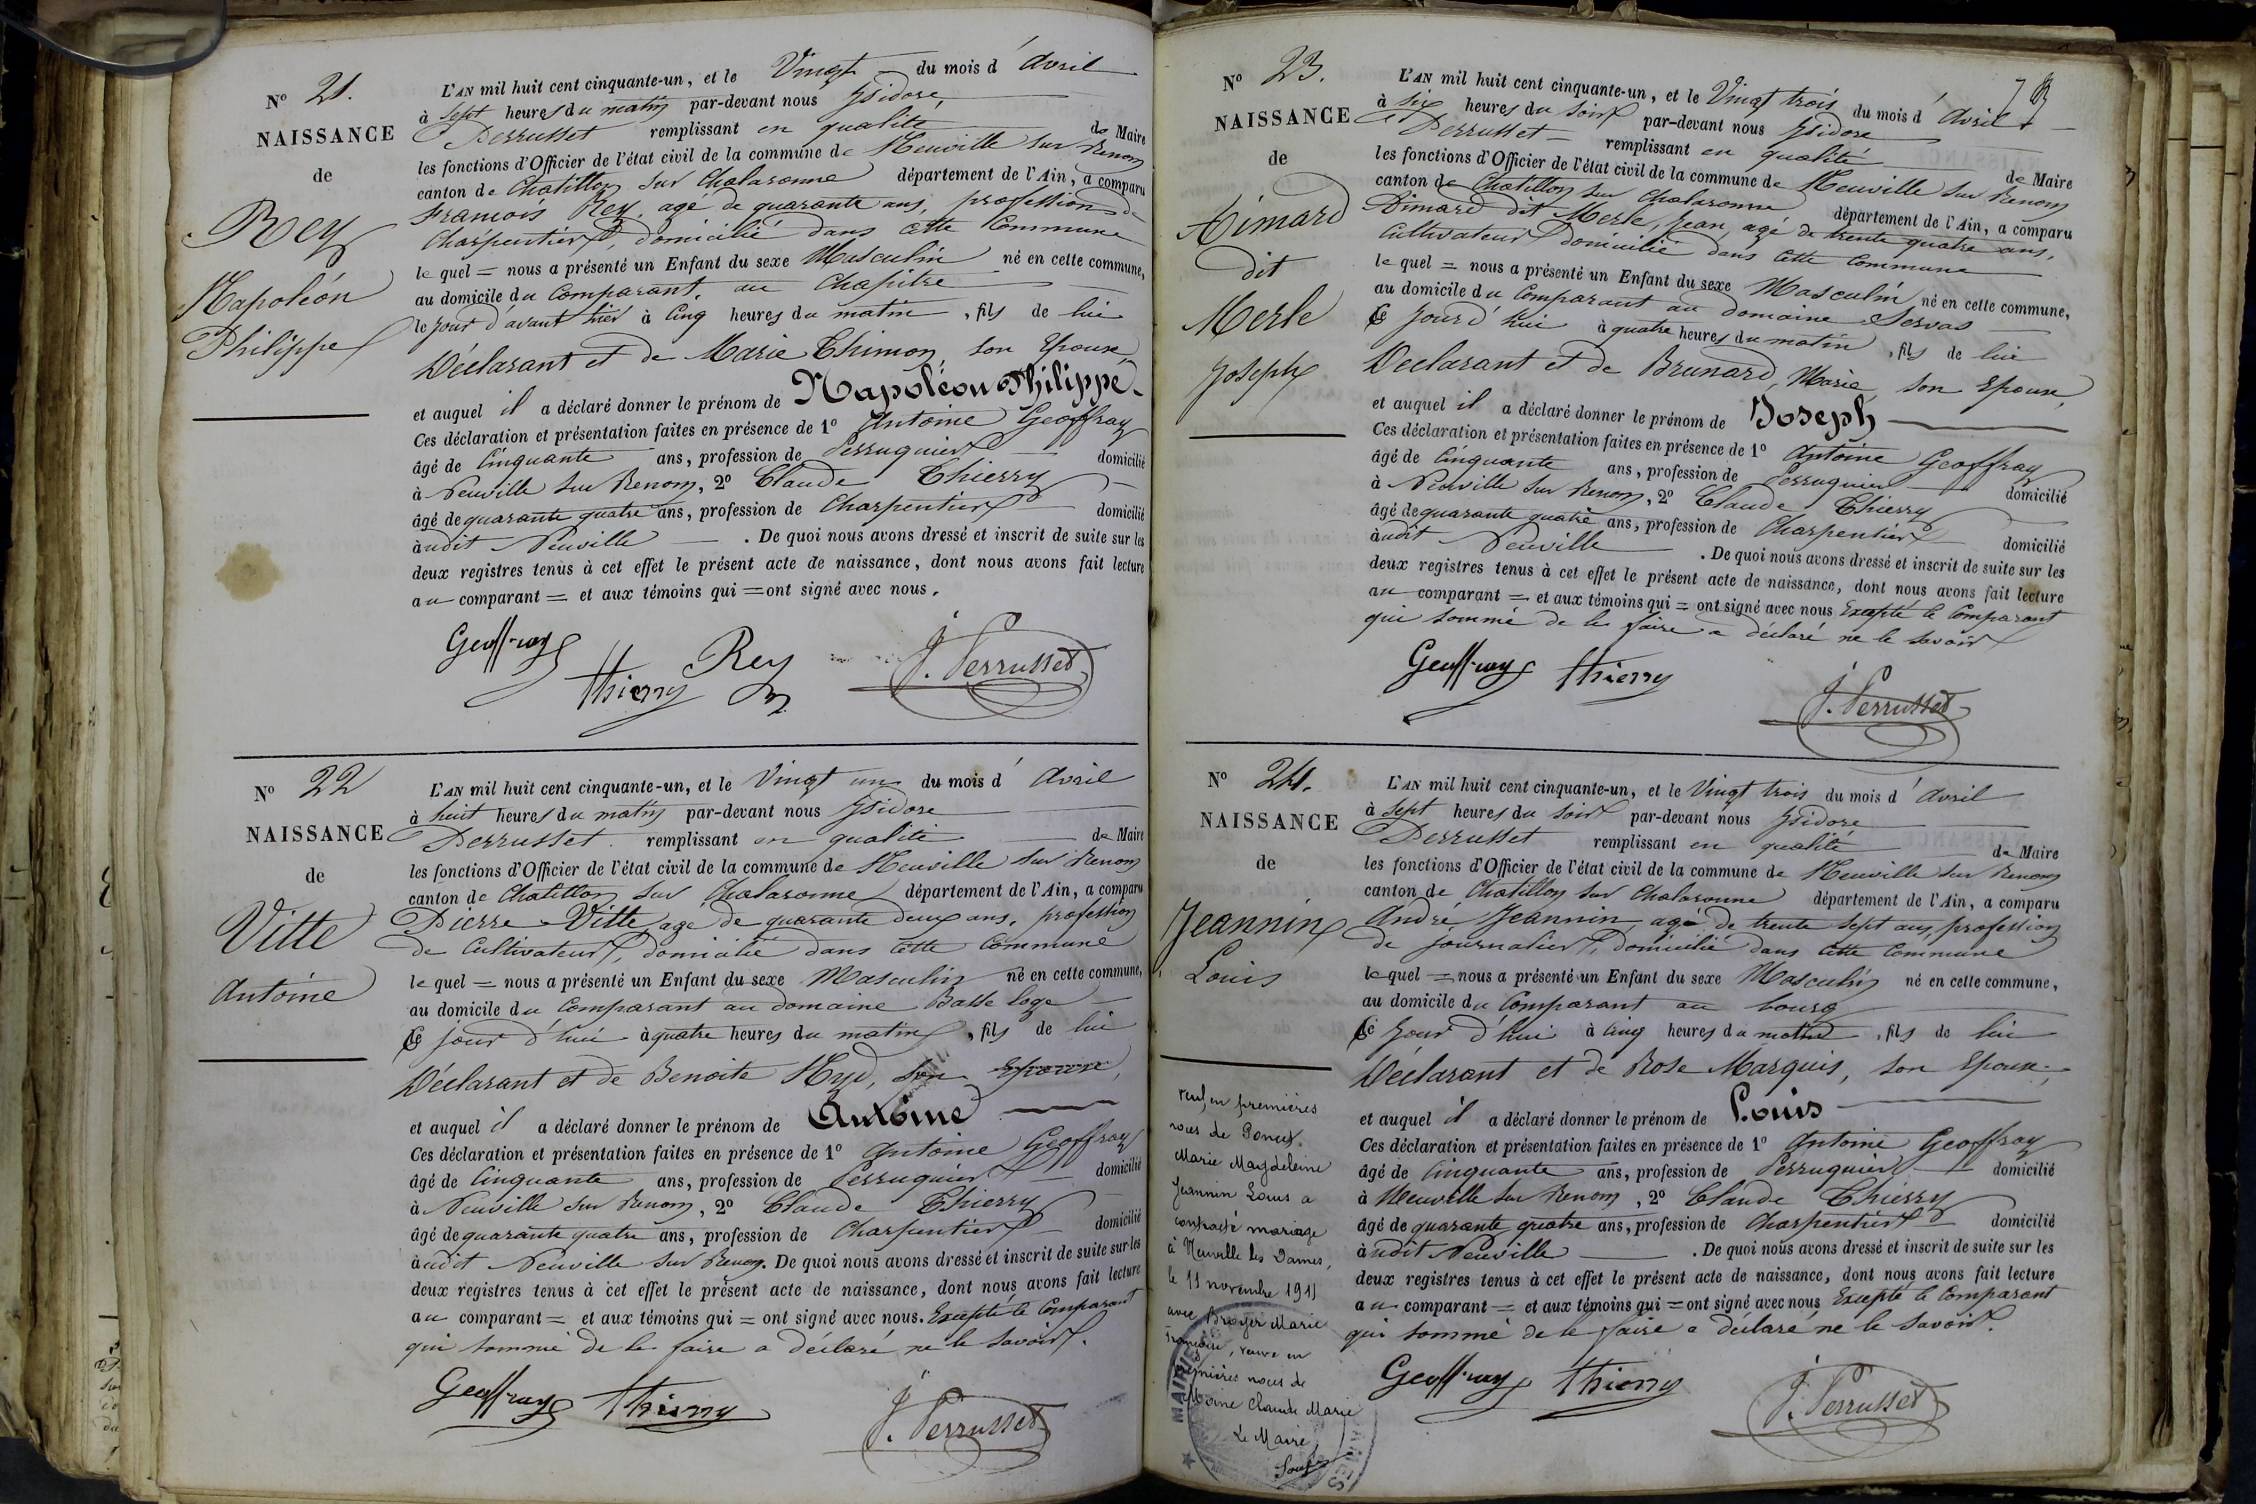 N° 21.
NAISSANCE
de
Rey
Napoléon
Philippe
L'AN mil huit cent cinquante-un, et le Vingt du mois d'Avril
à sept heures du matin par-devant nous Isidore
Perrusset remplissant en qualité de Maire
les fonctions d'Officier de l'état civil de la commune de Neuville sur Renom
canton de Chatillon sur Chalaronne département de l'Ain, a comparu
François Rey, agé de quarante ans, profession de
Charpentier, domicilié dans cette Commune
le quel = nous a présenté un Enfant du sexe Masculin né en cette commune,
au domicile du Comparant, au Chapitre
le jour d'avant hier à Cinq heures du matin, fils de lui
Déclarant et de Marie Thimon, son Epouse
et auquel il a déclaré donner le prénom de Napoléon Philippe.
Ces déclaration et présentation faites en présence de 1° Antoine Geoffray
âgé de Cinquante ans, profession de Perruquier domicilié
à Neuville sur Renom, 2° Claude Thierry
âgé de quarante quatre ans, profession de Charpentier domicilié
audit Neuville . De quoi nous avons dressé et inscrit de suite sur les
deux registres tenus à cet effet le présent acte de naissance, dont nous avons fait lecture
au comparant = et aux témoins qui = ont signé avec nous.
Geoffray Thierry Rey J. Perrusset
N° 22
NAISSANCE
de
Vitte
Antoine
L'AN mil huit cent cinquante-un, et le Vingt un du mois d'Avril
à huit heures du matin par-devant nous Isidore
Perrusset remplissant en qualité de Maire
les fonctions d'Officier de l'état civil de la commune de Neuville sur Renom
canton de Chatillon sur Chalaronne département de l'Ain, a comparu
Pierre Vitte, agé de quarante deux ans, profession
de Cultivateur, domicilié dans cette Commune
le quel = nous a présenté un Enfant du sexe Masculin né en cette commune,
au domicile du Comparant au domaine Basse loge
Ce jour d'hui à quatre heures du matin, fils de lui
Déclarant et de Benoite son Epouse,
et auquel il a déclaré donner le prénom de Antoine
Ces déclaration et présentation faites en présence de 1° Antoine Geoffray
âgé de Cinquante ans, profession de Perruquier domicilié
à Neuville sur Renom, 2° Claude Thierry
âgé de quarante quatre ans, profession de Charpentier domicilié
audit Neuville sur Renom. De quoi nous avons dressé et inscrit de suite sur les
deux registres tenus à cet effet le présent acte de naissance, dont nous avons fait lecture
au comparant = et aux témoins qui = ont signé avec nous. Excepté le Comparant
qui sommé de le faire a déclaré ne le savoir.
Geoffray Thierry J. Perrusset
N° 23.
NAISSANCE
de
Aimard
dit
Merle
Joseph
L'AN mil huit cent cinquante-un, et le Vingt trois du mois d'Avril
à six heures du soir par-devant nous Isidore
Perrusset remplissant en qualité de Maire
les fonctions d'Officier de l'état civil de la commune de Neuville sur Renom
canton de Chatillon sur Chalaronne département de l'Ain, a comparu
Aimard dit Merle, Jean, agé de trente quatre ans,
Cultivateur domicilié dans cette Commune
le quel = nous a présenté un Enfant du sexe Masculin né en cette commune,
au domicile du Comparant au domaine Servas
Ce jour d'hui à quatre heures du matin, fils de lui
Déclarant et de Brunard, Marie son Epouse,
et auquel il a déclaré donner le prénom de Joseph
Ces déclaration et présentation faites en présence de 1° Antoine Geoffray
âgé de Cinquante ans, profession de Perruquier domicilié
à Neuville sur Renom, 2° Claude Thierry
âgé de quarante quatre ans, profession de Charpentier domicilié
audit Neuville . De quoi nous avons dressé et inscrit de suite sur les
deux registres tenus à cet effet le présent acte de naissance, dont nous avons fait lecture
au comparant = et aux témoins qui = ont signé avec nous Excepté le Comparant
qui sommé de le faire a déclaré ne le savoir
Geoffray Thierry J. Perrusset
N° 24.
NAISSANCE
de
Jeannin
Louis
L'AN mil huit cent cinquante-un, et le Vingt trois du mois d'Avril
à sept heures du soir par-devant nous Isidore
Perrusset remplissant en qualité de Maire
les fonctions d'Officier de l'état civil de la commune de Neuville sur Renom
canton de Chatillon sur Chalaronne département de l'Ain, a comparu
André Jeannin, agé de trente sept ans, profession
de journalier, domicilié dans cette Commune
le quel = nous a présenté un Enfant du sexe Masculin né en cette commune,
au domicile du Comparant au bourg
Ce jour d'hui à cinq heures du matin, fils de lui
Déclarant et de Rose Marquis, son Epouse,
et auquel il a déclaré donner le prénom de Louis
Ces déclaration et présentation faites en présence de 1° Antoine Geoffray
âgé de Cinquante ans, profession de Perruquier domicilié
à Neuville sur Renom, 2° Claude Thierry
âgé de quarante quatre ans, profession de Charpentier domicilié
audit Neuville . De quoi nous avons dressé et inscrit de suite sur les
deux registres tenus à cet effet le présent acte de naissance, dont nous avons fait lecture
au comparant = et aux témoins qui = ont signé avec nous Excepté le Comparant
qui sommé de le faire a déclaré ne le savoir.
Geoffray Thierry J. Perrusset
Veuf en premières
noces de Poncet
Marie Magdeleine
Jeannin Louis a
contracté mariage
à Neuville les Dames,
le 11 novembre 1911
avec Broyer Marie
veuve en
premières noces de
Moine Claude Marie
Le Maire,
MAIRIE